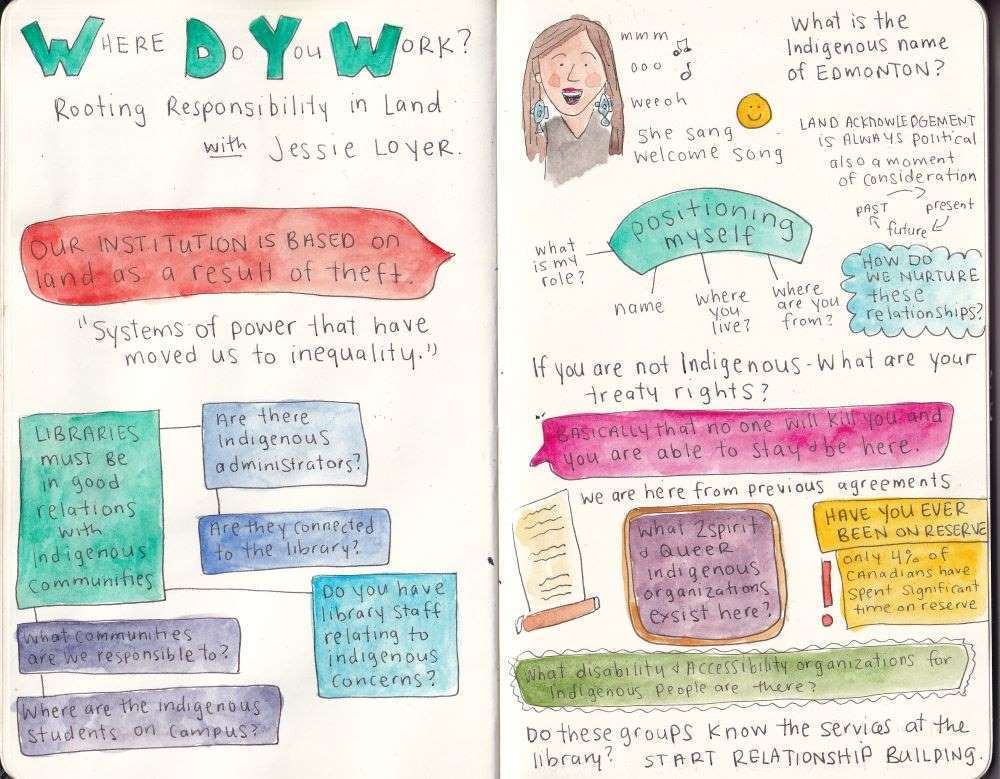 WHERE DO YOU WORK?
Rooting Responsibility in Land
with Jessie Loyer.
OUR INSTITUTION IS BASED on
land as a result of theft.
"Systems of power that have
moved us to inequality."
LIBRARIES
must BE
in good
relations
with
Indigenous
communities
Are there
Indigenous
administrators?
Are they connected
to the library?
Do you have
library staff
relating to
indigenous
concerns?
What communities
are we responsible to?
Where are the indigenous
students on campus?
mmm
ooo
weeoh
She sang
welcome song
What is the
Indigenous name
of EDMONTON?
LAND ACKNOWLEDGEMENT
is ALWAYS political
also a moment
of consideration
PAST
present
future
positioning
myself
what
is my
role?
name
where
you
live?
where
are you
from?
HOW DO
WE NURTURE
these
relationships?
If you are not Indigenous - What are your
treaty rights?
BASICALLY that no one will kill you and
you are able to stay & be here.
we are here from previous agreements
What 2spirit
& QUEER
indigenous
organizations
exsist here?
HAVE YOU EVER
BEEN ON RESERVE
only 4% of
CANADIANS have
spent significant
time on reserve
What disability & Accessibility organizations for
Indigenous People are there?
Do these groups know the services at the
library? START RELATIONSHIP BUILDING.